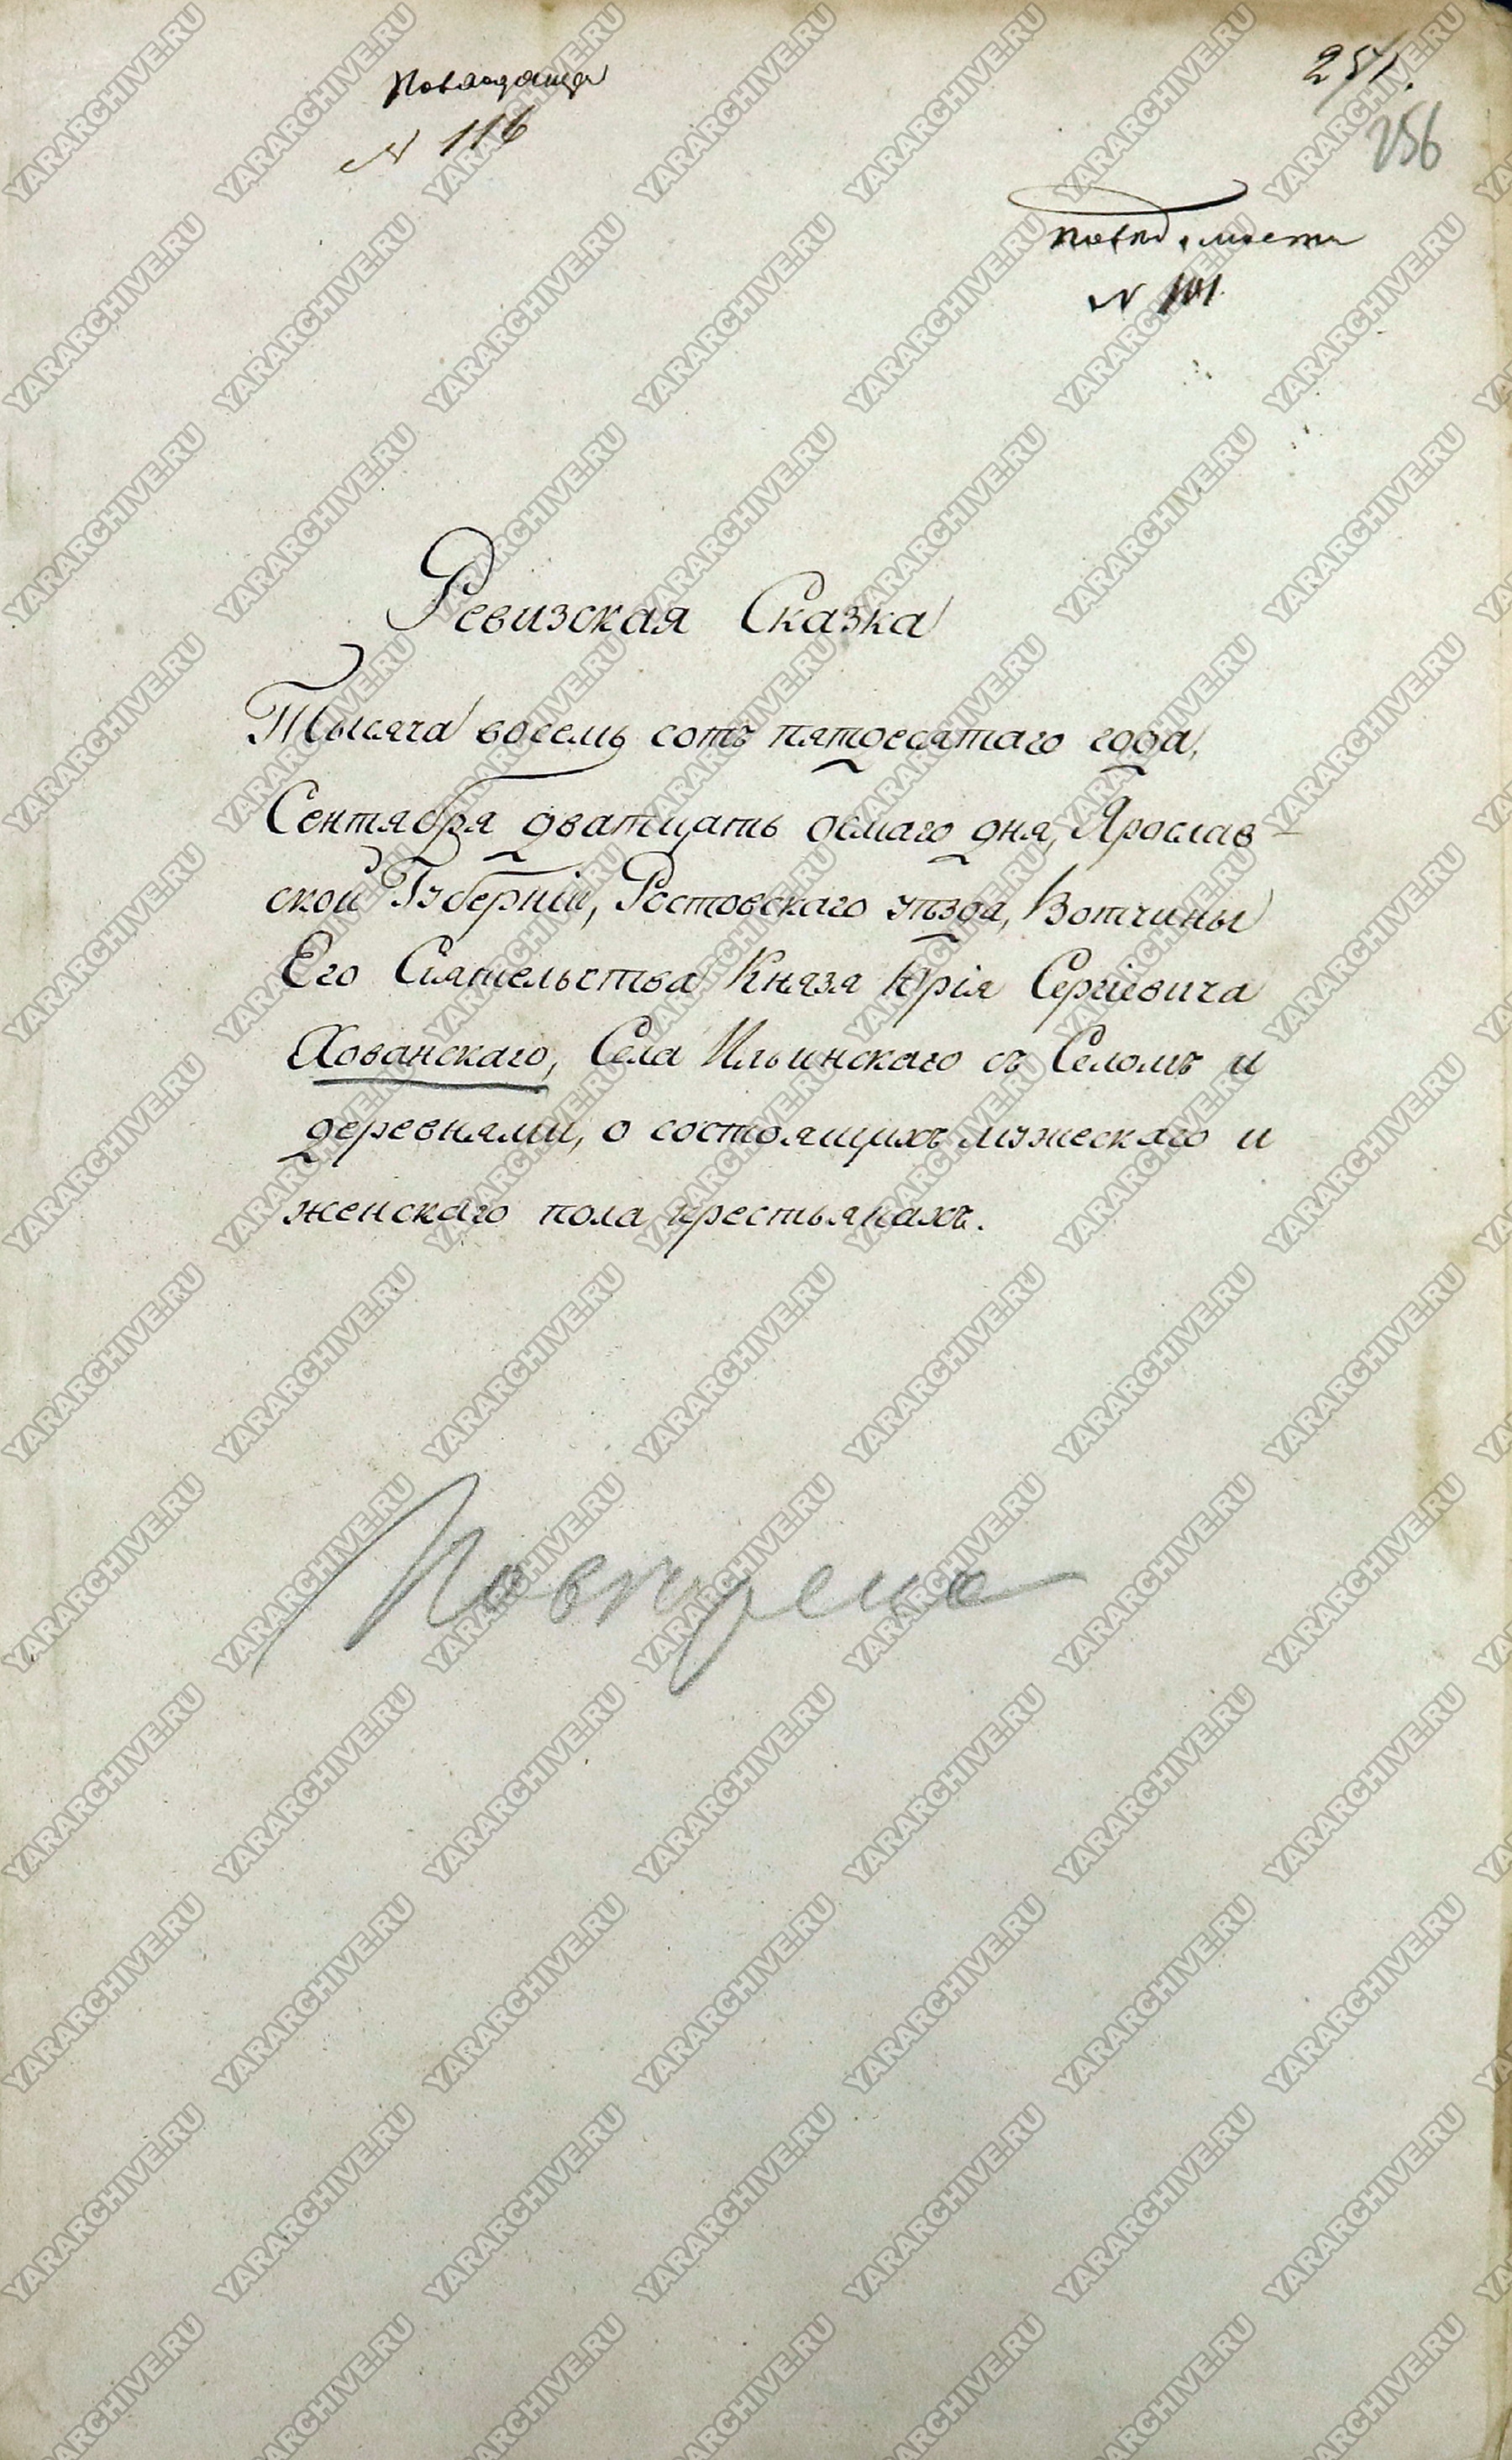 N 116
251.
256
N 101.
Ревизская Сказка
Тысяча восемь сотъ пятдесятаго года,
Сентября дватцать осмаго дня, Ярослав-
ской Губерніи, Ростовскаго уѣзда, Вотчины
Его Сіятельства Князя Юрія Сергіевича
Хованскаго, Села Ильинскаго съ Селомъ и
деревнями, о состоящихъ мужескаго и
женскаго пола крестьянахъ.
YARARCHIVE.RU